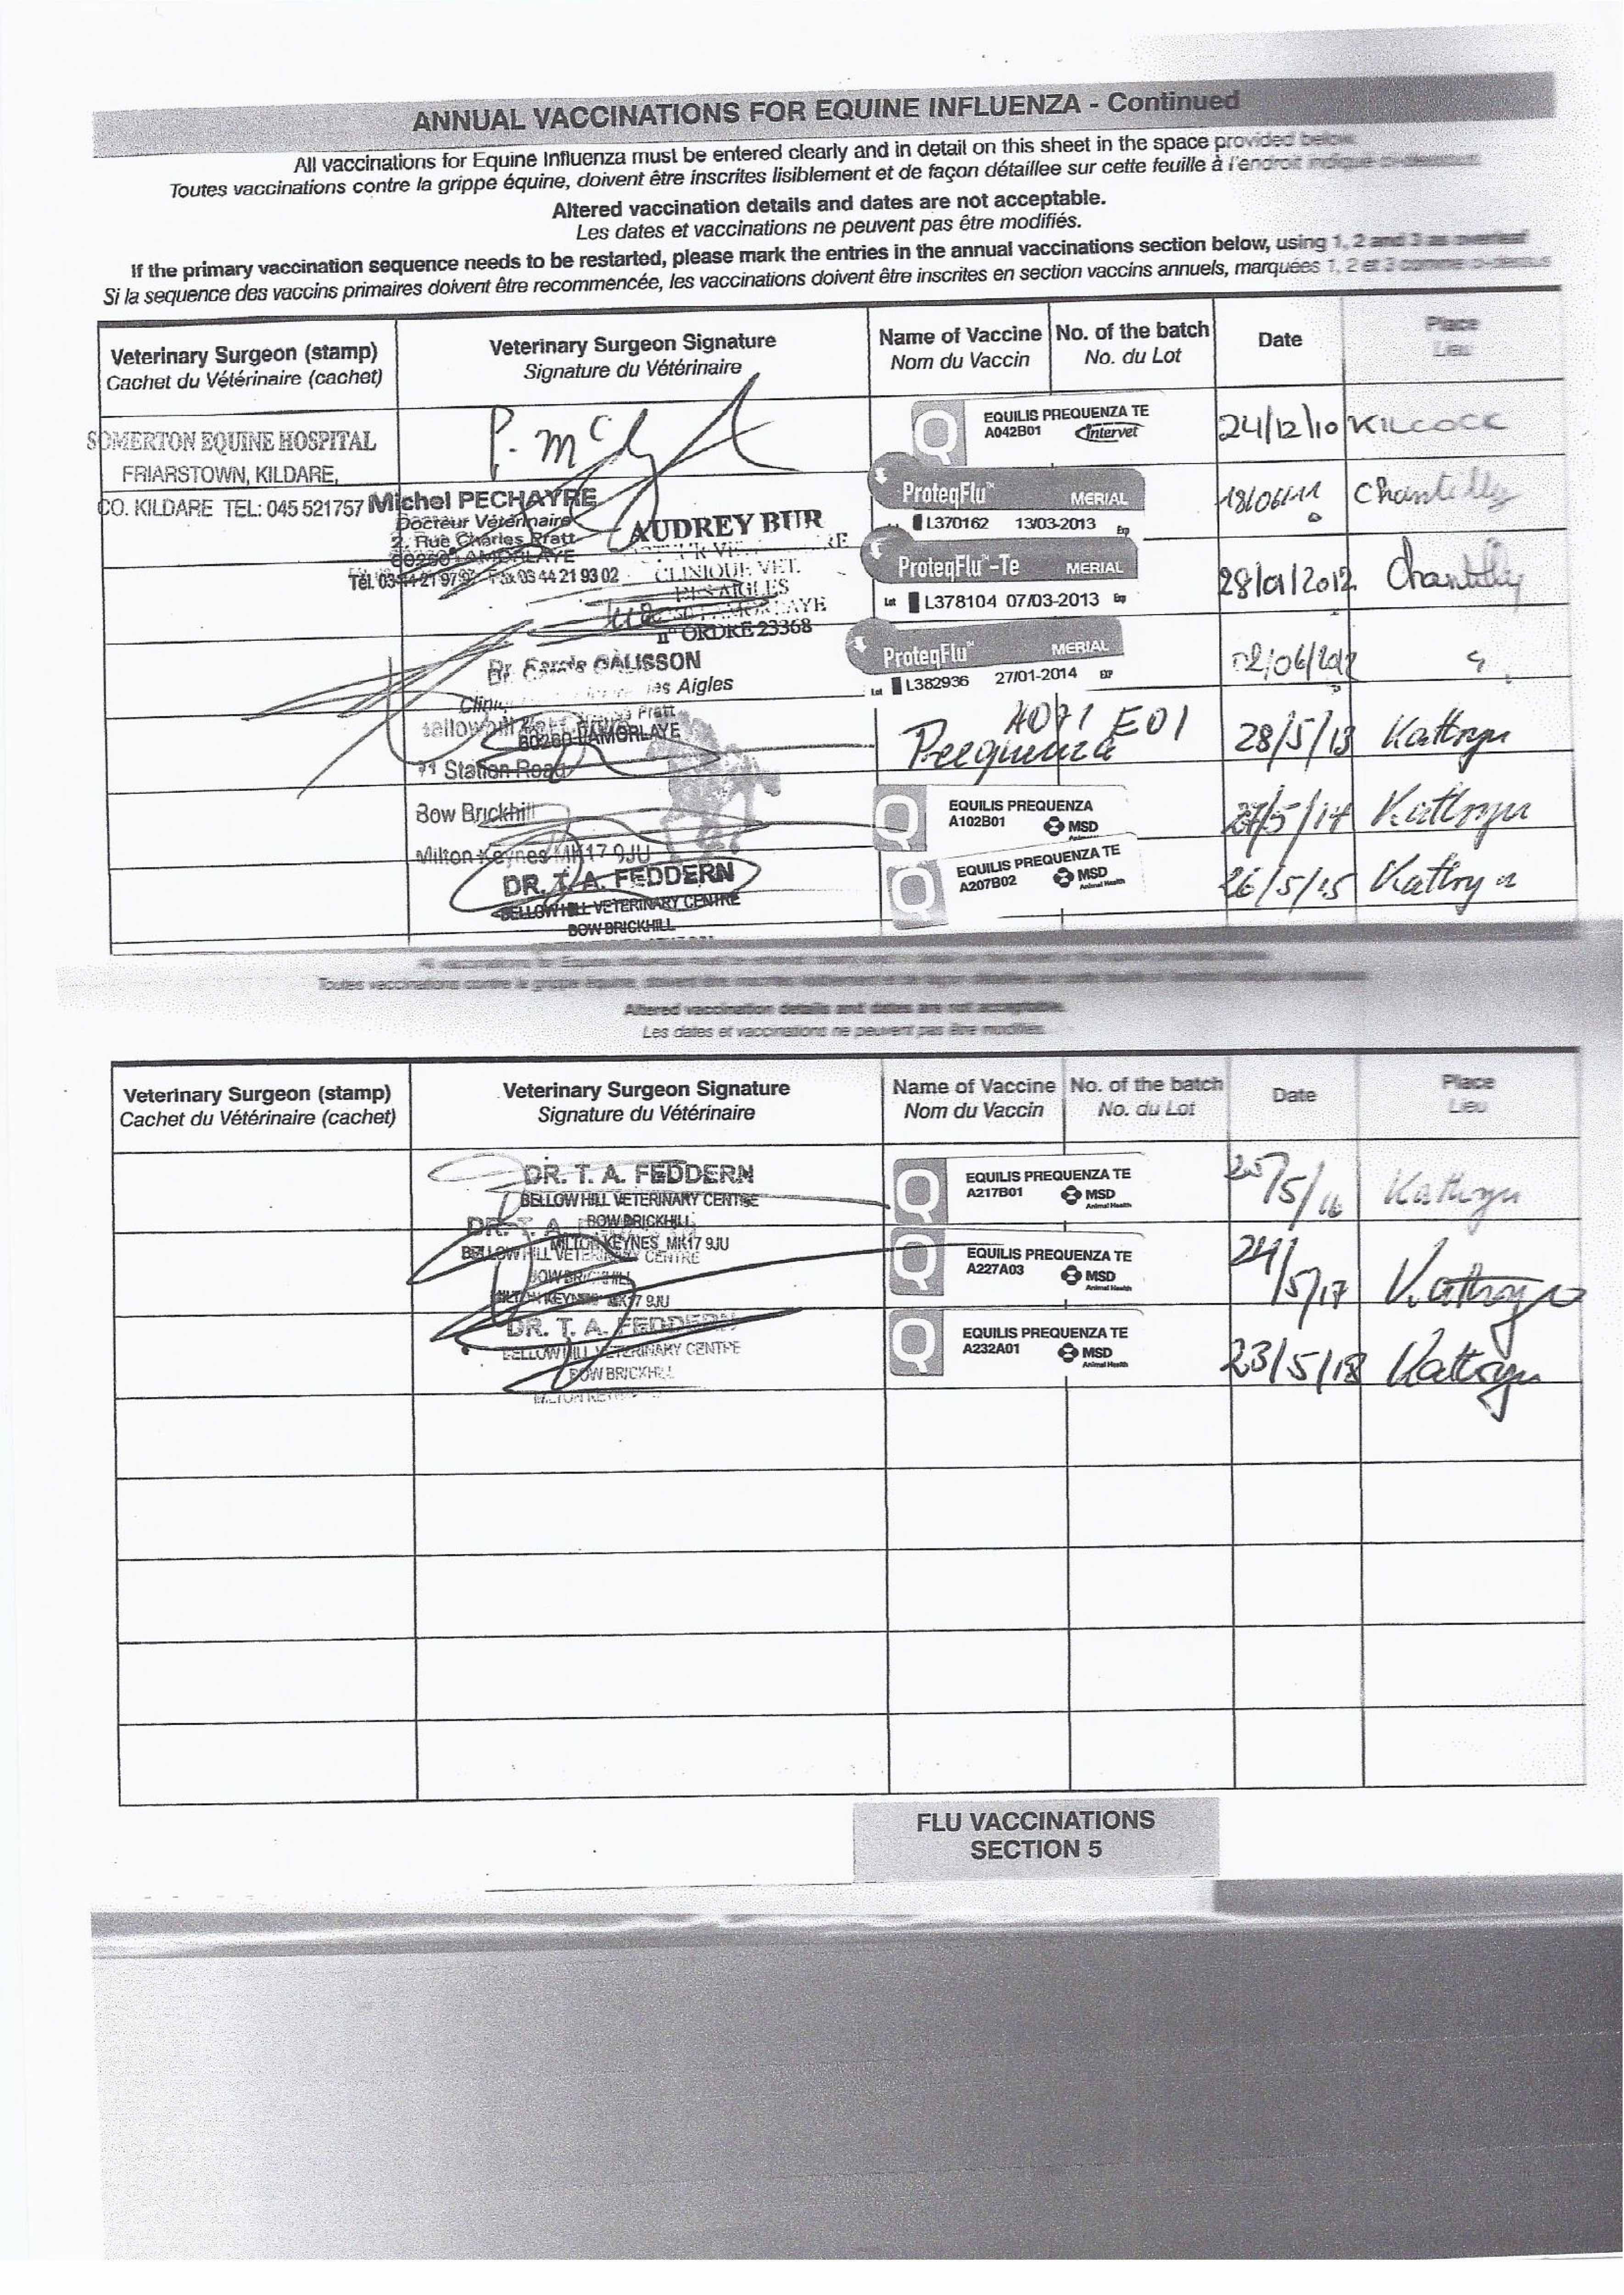 ANNUAL VACCINATIONS FOR EQUINE INFLUENZA - Continued
All vaccinations for Equine Influenza must be entered clearly and in detail on this sheet in the space provided below.
Toutes vaccinations contre la grippe équine, doivent être inscrites lisiblement et de façon détaillee sur cette feuille à l'endroit indique ci-dessous.
Altered vaccination details and dates are not acceptable.
Les dates et vaccinations ne peuvent pas être modifiés.
If the primary vaccination sequence needs to be restarted, please mark the entries in the annual vaccinations section below, using 1, 2 and 3 as overleaf
Si la sequence des vaccins primaires doivent être recommencée, les vaccinations doivent être inscrites en section vaccins annuels, marquées 1, 2 et 3 comme ci-dessus
Veterinary Surgeon (stamp) Veterinary Surgeon Signature Name of Vaccine No. of the batch Date Place
Cachet du Vétérinaire (cachet) Signature du Vétérinaire Nom du Vaccin No. du Lot Lieu
EQUILIS PREQUENZA TE
A042B01 Intervet
24/12/10 KILCOCK
SOMERTON EQUINE HOSPITAL
FRIARSTOWN, KILDARE,
CO. KILDARE TEL: 045 521757
P. McG
Michel PECHAYRE
Docteur Vétérinaire
2, Rue Charles Pratt
60260 LAMORLAYE
Fax 03 44 21 93 02
ProteqFlu MERIAL
L370162 13/03-2013 Exp
18/06/11 Chantilly
AUDREY BUR
CLINIQUE VET.
DES AIGLES
n° ORDRE 23368
ProteqFlu-Te MERIAL
Lot L378104 07/03-2013 Exp
28/01/2012 Chantilly
Dr. Carole GALISSON
les Aigles
Pratt
60260 LAMORLAYE
ProteqFlu MERIAL
Lot L382936 27/01-2014 EXP
02/06/2012
71 Station Road
Bow Brickhill
Milton Keynes MK17 9JU
A071 E01
Prequenza
28/5/13 Kathryn
EQUILIS PREQUENZA
A102B01 MSD
27/5/14 Kathryn
DR. T. A. FEDDERN
BELLOW HILL VETERINARY CENTRE
BOW BRICKHILL
EQUILIS PREQUENZA TE
A207B02 MSD
Animal Health
26/5/15 Kathryn
Toutes vaccinations contre la grippe équine, doivent être
Altered vaccination details and dates are not acceptable.
Les dates et vaccinations ne peuvent pas être modifiés.
Veterinary Surgeon (stamp) Veterinary Surgeon Signature Name of Vaccine No. of the batch Date Place
Cachet du Vétérinaire (cachet) Signature du Vétérinaire Nom du Vaccin No. du Lot Lieu
DR. T. A. FEDDERN
BELLOW HILL VETERINARY CENTRE
BOW BRICKHILL
MILTON KEYNES MK17 9JU
EQUILIS PREQUENZA TE
A217B01 MSD
Animal Health
Kathryn
DR. T. A.
BELLOW HILL VETERINARY CENTRE
BOW BRICKHILL
MILTON KEYNES MK17 9JU
EQUILIS PREQUENZA TE
A227A03 MSD
Animal Health
24/5/17 Kathryn
DR. T. A. FEDDERN
BELLOW HILL VETERINARY CENTRE
BOW BRICKHILL
MILTON KEYNES
EQUILIS PREQUENZA TE
A232A01 MSD
Animal Health
23/5/18 Kathryn
FLU VACCINATIONS
SECTION 5